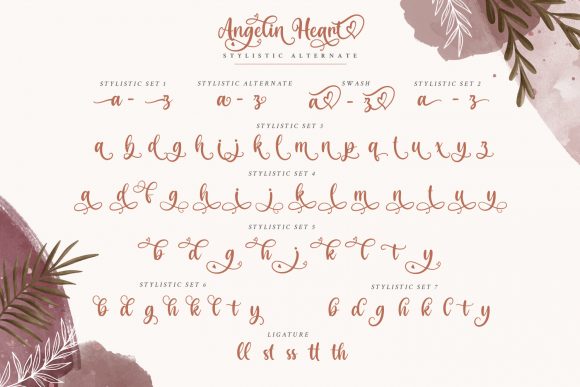 Angelin Heart
STYLISTIC ALTERNATE
STYLISTIC SET 1 STYLISTIC ALTERNATE SWASH STYLISTIC SET 2
a - z a - z a - z a - z
STYLISTIC SET 3
a b d g h i j k l m n p q t u x y z
STYLISTIC SET 4
a d f g h i j k l m n t u y
STYLISTIC SET 5
b d g h j k l t y
STYLISTIC SET 6 STYLISTIC SET 7
b d g h k l t y b d g h k l t y
LIGATURE
ll st ss tt th